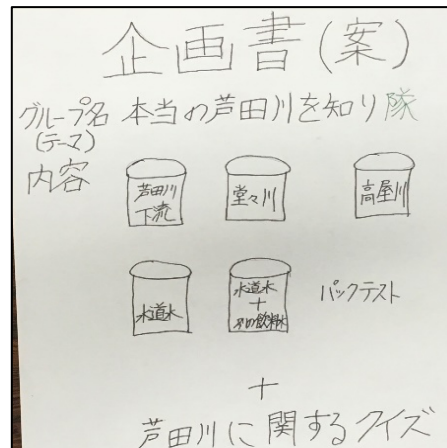 企画書(案)
グループ名 本当の芦田川を知り隊
(テーマ)
内容
芦田川
下流
堂々川
高屋川
水道水
水道水
+
飲料水
パックテスト
+
芦田川に関するクイズ